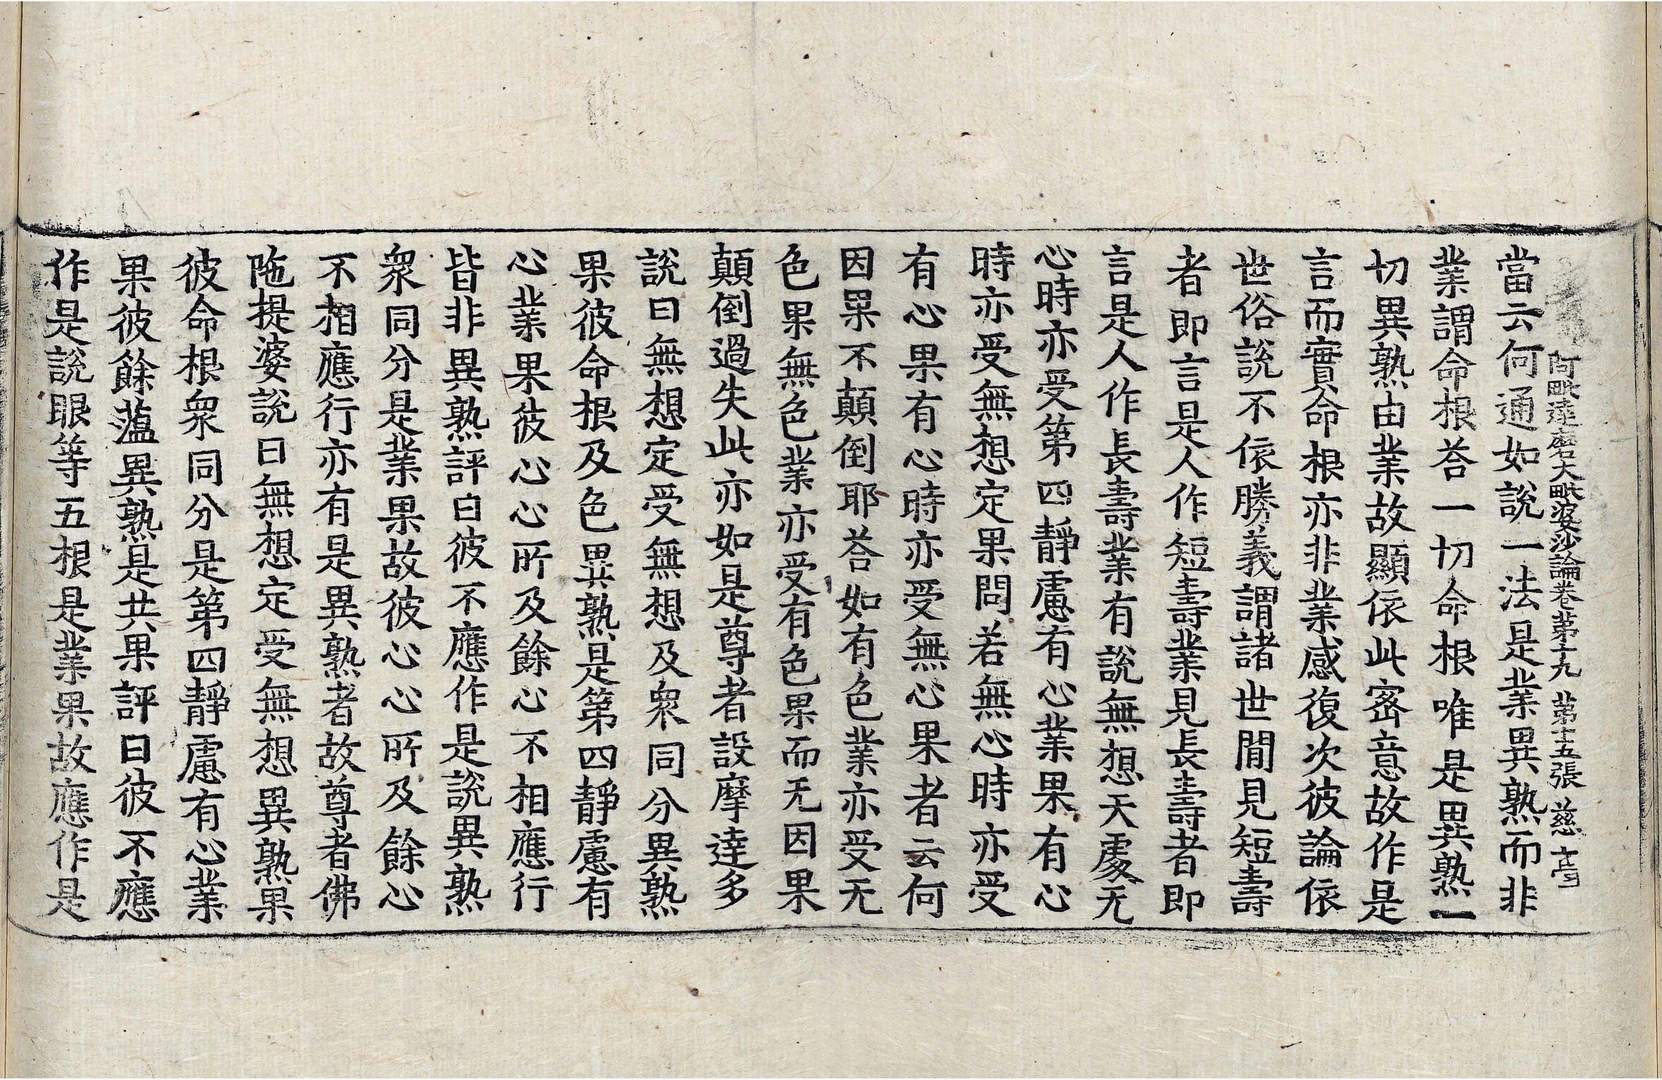 阿毗達磨大毗婆沙論卷第十九 第十五張 慈
當云何通如說一法是業異熟而非
業謂命根荅一切命根唯是異熟一
切異熟由業故顯依此密意故作是
言而實命根亦非業感復次彼論依
世俗說不依勝義謂諸世間見短壽
者即言是人作短壽業見長壽者即
言是人作長壽業有說無想天處无
心時亦受第四靜慮有心業果有心
時亦受無想定果問若無心時亦受
有心果有心時亦受無心果者云何
因果不顛倒耶荅如有色業亦受无
色果無色業亦受有色果而无因果
顛倒過失此亦如是尊者設摩達多
說曰無想定受無想及衆同分異熟
果彼命根及色異熟是第四靜慮有
心業果彼心心所及餘心不相應行
皆非異熟評曰彼不應作是說異熟
衆同分是業果故彼心心所及餘心
不相應行亦有是異熟者故尊者佛
陁提婆說曰無想定受無想異熟果
彼命根衆同分是第四靜慮有心業
果彼餘藴異熟是共果評曰彼不應
作是說眼等五根是業果故應作是